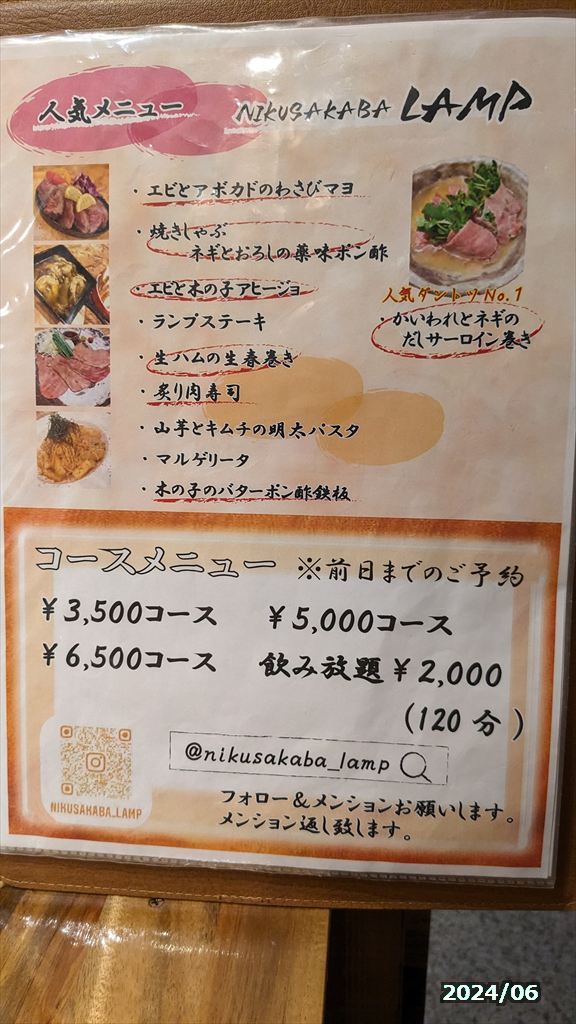 人気メニュー
NIKUSAKABA LAMP
・エビとアボカドのわさびマヨ
・焼きしゃぶ
ネギとおろしの薬味ポン酢
・エビと木の子アヒージョ
・ランプステーキ
・生ハムの生春巻き
・炙り肉寿司
・山芋とキムチの明太パスタ
・マルゲリータ
・木の子のバターポン酢鉄板
人気ダントツNo.1
・かいわれとネギの
だしサーロイン巻き
コースメニュー ※前日までのご予約
¥3,500コース ¥5,000コース
¥6,500コース 飲み放題¥2,000
(120分)
@nikusakaba_lamp
NIKUSAKABA_LAMP
フォロー&メンションお願いします。
メンション返し致します。
2024/06